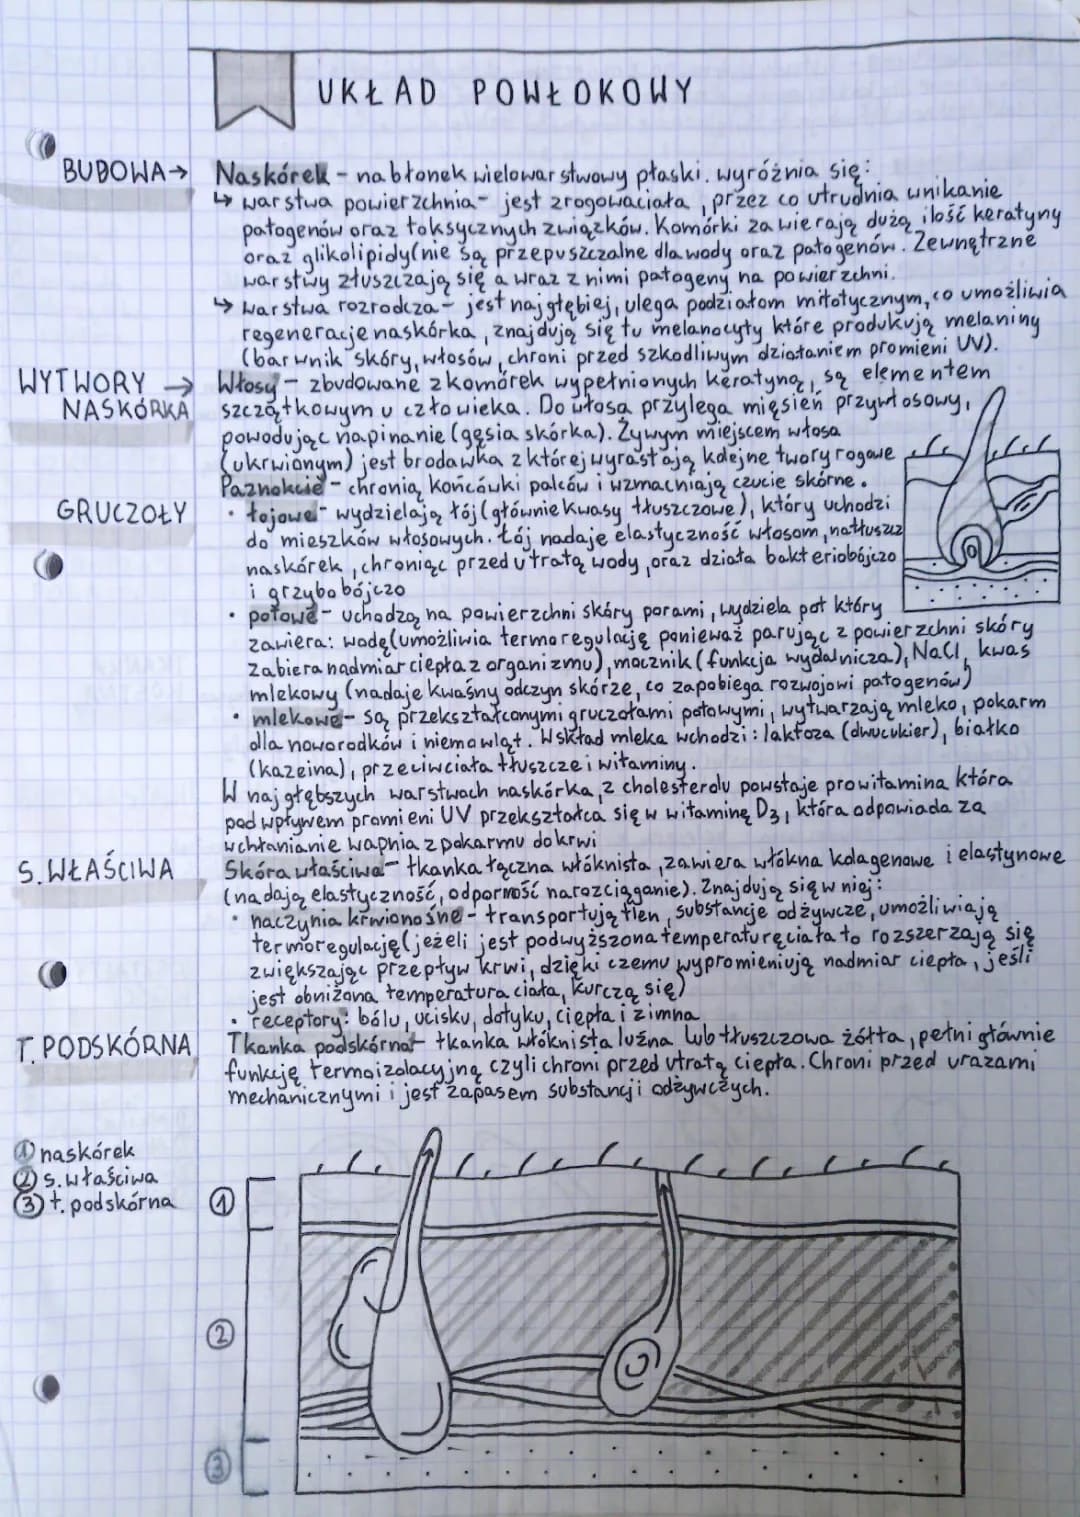 UKŁAD POWŁOKOWY
BUDOWA→
Naskórek - nabłonek wielowarstwowy płaski. wyróżnia się:
↳ warstwa powierzchnia - jest zrogowaciała, przez co utrudnia wnikanie
patogenów oraz toksycznych związków. Komórki zawierają dużą ilość keratyny
oraz glikolipidy(nie są przepuszczalne dla wody oraz patogenów. Zewnętrzne
warstwy złuszczają się a wraz z nimi patogeny na powierzchni.
↳ warstwa rozrodcza - jest najgłębiej, ulega podziałom mitotycznym, co umożliwia
regeneracje naskórka, znajdują się tu melanocyty które produkują melaniny
(barwnik skóry, włosów, chroni przed szkodliwym działaniem promieni UV).
WYTWORY → NASKÓRKA
Włosy - zbudowane z komórek wypełnionych keratyną, są elementem
szczątkowym u człowieka. Do włosa przylega mięsień przywłosowy,
powodując napinanie (gęsia skórka). Żywym miejscem włosa
(ukrwionym) jest brodawka z której wyrastają kolejne twory rogowe
Paznokcie - chronią końcówki palców i wzmacniają czucie skórne.
GRUCZOŁY
• łojowe - wydzielają łój (głównie kwasy tłuszczowe), który uchodzi
do mieszków włosowych. Łój nadaje elastyczność włosom, natłuszcz
naskórek, chroniąc przed utratą wody, oraz działa bakteriobójczo
i grzybobójczo
• potowe - uchodzą na powierzchni skóry porami, wydziela pot który
zawiera: wodę (umożliwia termoregulację ponieważ parując z powierzchni skóry
zabiera nadmiar ciepła z organizmu), mocznik (funkcja wydalnicza), NaCl, kwas
mlekowy (nadaje kwaśny odczyn skórze, co zapobiega rozwojowi patogenów)
• mlekowe - są przekształconymi gruczołami potowymi, wytwarzają mleko, pokarm
dla noworodków i niemowląt. W skład mleka wchodzi: laktoza (dwucukier), białko
(kazeina), przeciwciała tłuszcze i witaminy.
W najgłębszych warstwach naskórka, z cholesterolu powstaje prowitamina która
pod wpływem promieni UV przekształca się w witaminę D3, która odpowiada za
wchłanianie wapnia z pokarmu do krwi
S. WŁAŚCIWA
Skóra właściwa - tkanka łączna włóknista, zawiera włókna kolagenowe i elastynowe
(nadają elastyczność, odporność na rozciąganie). Znajdują się w niej:
• naczynia krwionośne - transportują tlen, substancje odżywcze, umożliwiają
termoregulację (jeżeli jest podwyższona temperaturę ciała to rozszerzają się
zwiększając przepływ krwi, dzięki czemu wypromieniują nadmiar ciepła, jeśli
jest obniżona temperatura ciała, kurczą się)
• receptory: bólu, ucisku, dotyku, ciepła i zimna
T. PODSKÓRNA
Tkanka podskórna - tkanka włóknista luźna lub tłuszczowa żółta, pełni głównie
funkcję termoizolacyjną czyli chroni przed utratą ciepła. Chroni przed urazami
mechanicznymi i jest zapasem substancji odżywczych.
① naskórek
② s. właściwa
③ t. podskórna
①
②
③